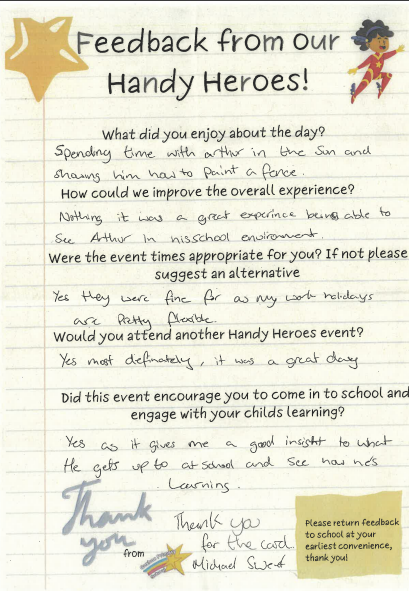 Feedback from our
Handy Heroes!
What did you enjoy about the day?
Spending time with arthur in the Sun and
showing him how to paint a fence.
How could we improve the overall experience?
Nothing it was a great experince being able to
See Arthur in his school environment.
Were the event times appropriate for you? If not please
suggest an alternative
Yes they were fine for as my work holidays
are Pretty flexible.
Would you attend another Handy Heroes event?
Yes most definately, it was a great day
Did this event encourage you to come in to school and
engage with your childs learning?
Yes as it gives me a good insight to what
He gets up to at school and see how he's
Learning.
Thank
you
from
Thank you
for the card.
Michael
Please return feedback
to school at your
earliest convenience,
thank you!